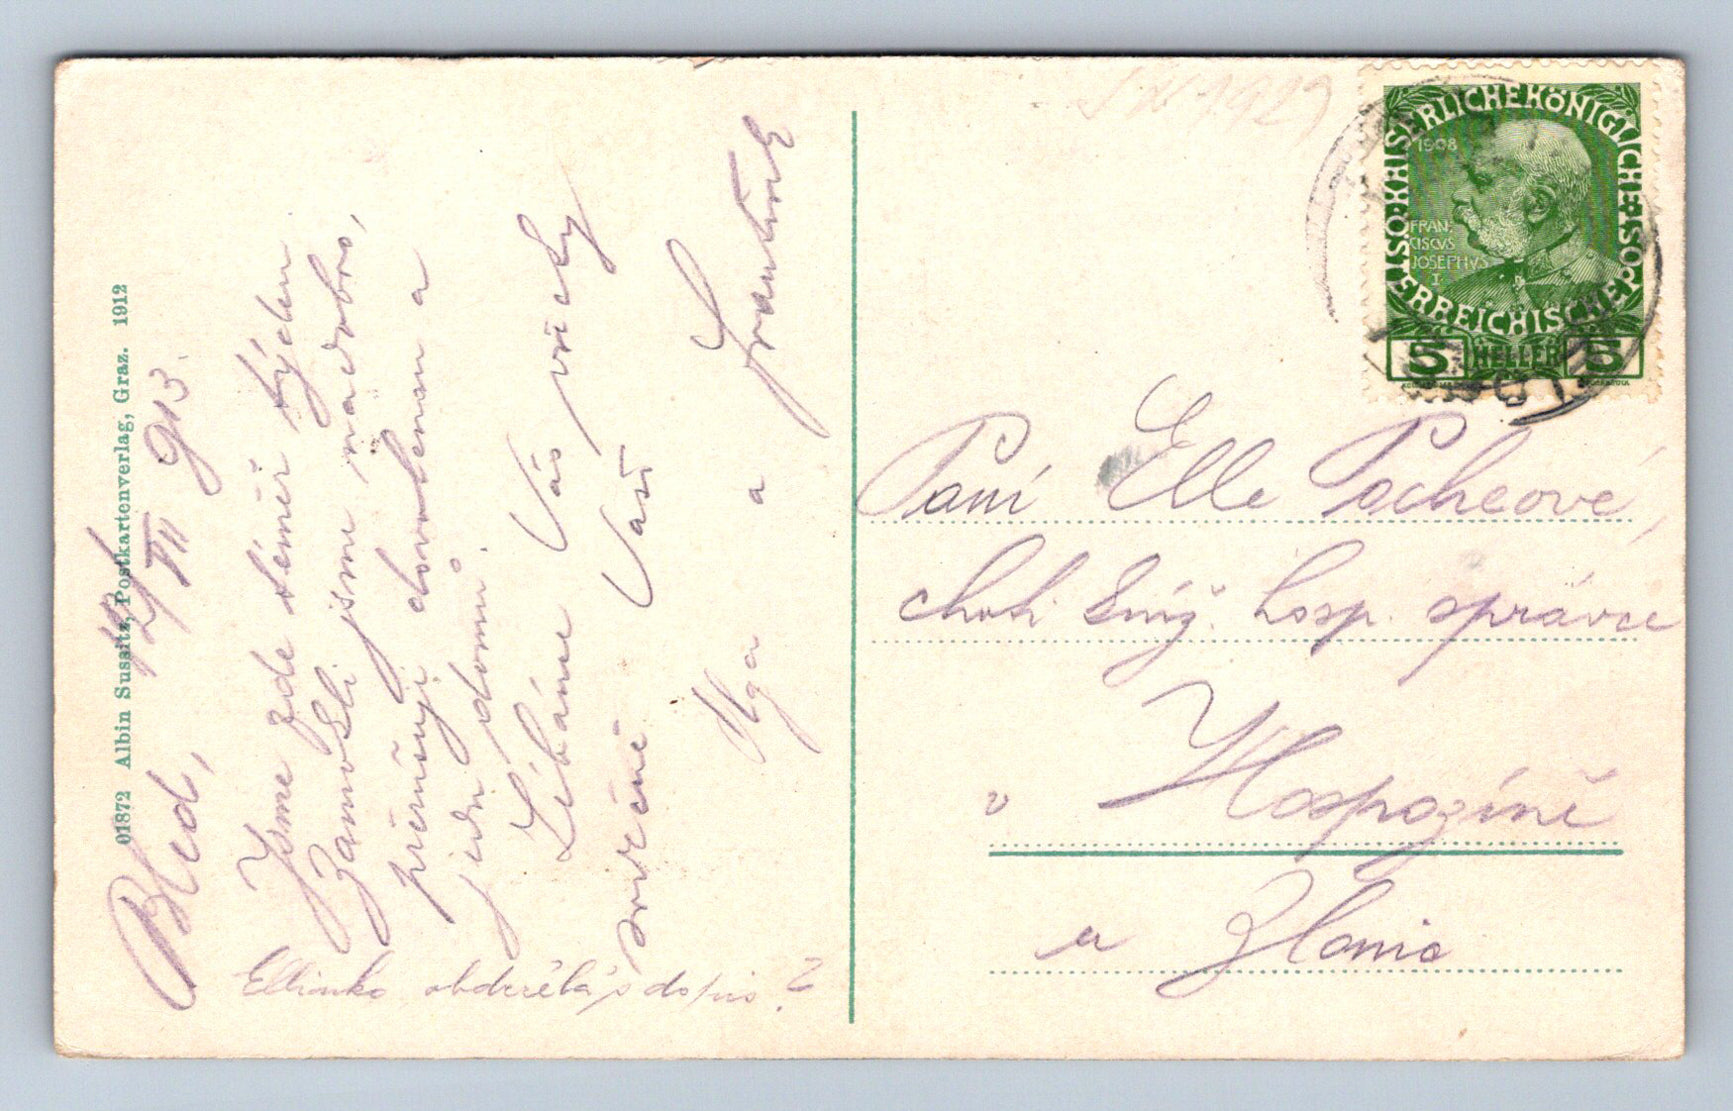 01872 Albin Sussitz, Postkartenverlag, Graz. 1912
Bled, 12/VII 913.
Jsme zde téměř týden
jsme nadobro,
přerušuji dovolenou a
jedu domů.
Líbáme Vás všicky
srdečně Vaši
Olga a Frantisek
Ellinko, obdržela's dopis?
KAISERLICHE KÖNIGLICHE ÖSTERREICHISCHE POST
1908
FRAN-
CISCVS
JOSEPHVS
I
5 HELLER 5
Paní Elle Pocheové,
choti hosp. správce
v Hospozíně
u Zlonic